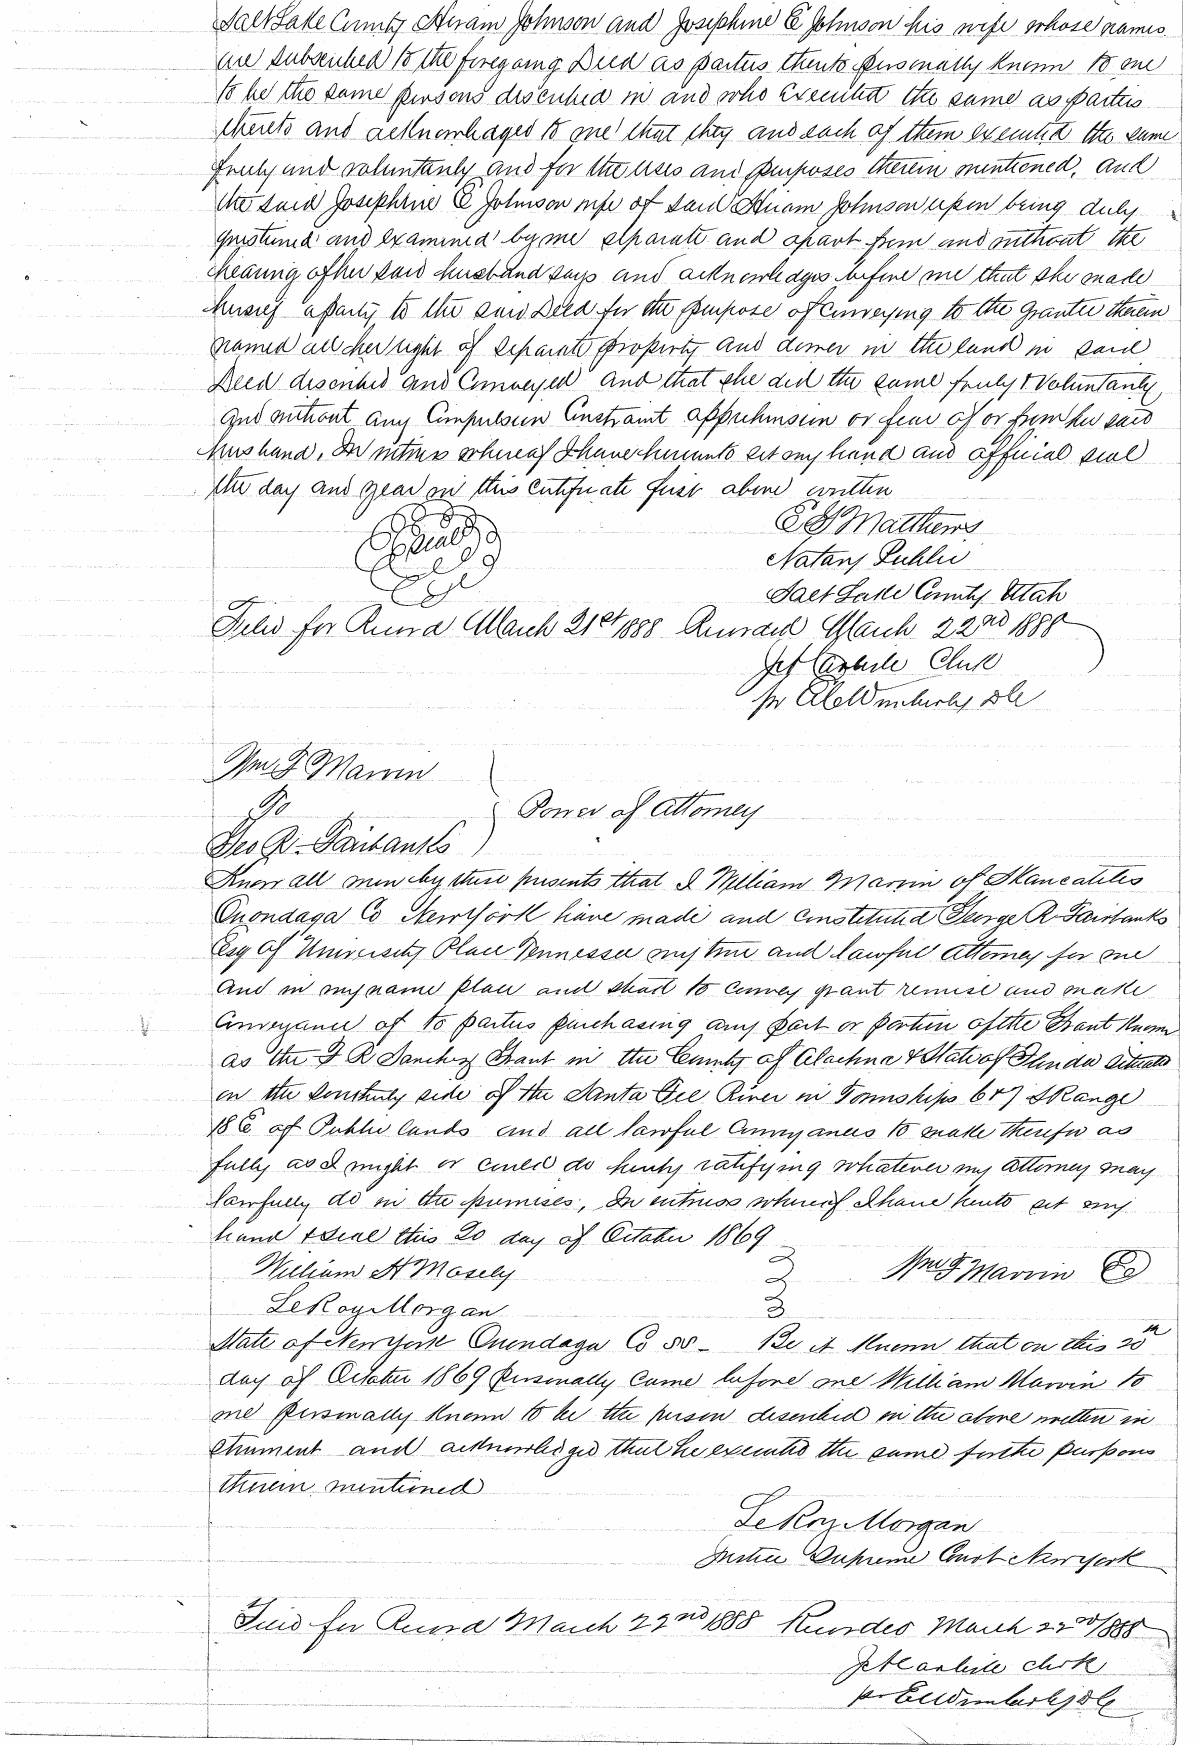 Salt Lake County Hiram Johnson and Josephine E Johnson his wife whose names
are subscribed to the foregoing Deed as parties thereto personally known to me
to be the same persons described in and who executed the same as parties
thereto and acknowledged to me that they and each of them executed the same
freely and voluntarily and for the uses and purposes therein mentioned, and
the said Josephine E Johnson wife of said Hiram Johnson upon being duly
questioned and examined by me separate and apart from and without the
hearing of her said husband says and acknowledges before me that she made
herself a party to the said Deed for the purpose of Conveying to the grantee therein
named all her right of separate property and dower in the land in said
Deed described and Conveyed and that she did the same freely & Voluntarily
and without any Compulsion Constraint apprehension or fear of or from her said
husband, In witness whereof I have hereunto set my hand and official seal
the day and year in this Certificate first above written
Seal
E G Matthews
Notary Public
Salt Lake County Utah
Filed for Record March 21st 1888 Recorded March 22nd 1888
Clerk
pr D C
Wm F Marvin
To
Geo R. Fairbanks
Power of Attorney
Know all men by these presents that I William Marvin of Skaneateles
Onondaga Co New York have made and Constituted George R. Fairbanks
Esq of University Place Tennessee my true and lawful Attorney for me
and in my name place and stead to convey grant remise and make
Conveyance of to parties purchasing any part or portion of the Grant Known
as the F R Sanchez Grant in the County of Alachua & State of Florida situate
on the southerly side of the Santa Fee River in Townships 6 & 7 S Range
18 E of Public lands and all lawful Conveyances to make therefor as
fully as I might or could do hereby ratifying whatever my attorney may
lawfully do in the premises, In witness whereof I have hereto set my
hand & seal this 20 day of October 1869
William H Mosely
Wm F Marvin
LeRoy Morgan
State of New York Onondaga Co SS - Be it Known that on this 20th
day of October 1869 personally came before me William Marvin to
me personally known to be the person described in the above written in
strument and acknowledged that he executed the same for the purposes
therein mentioned
LeRoy Morgan
Justice Supreme Court New York
Filed for Record March 22nd 1888 Recorded March 22nd/1888
clerk
pr D C